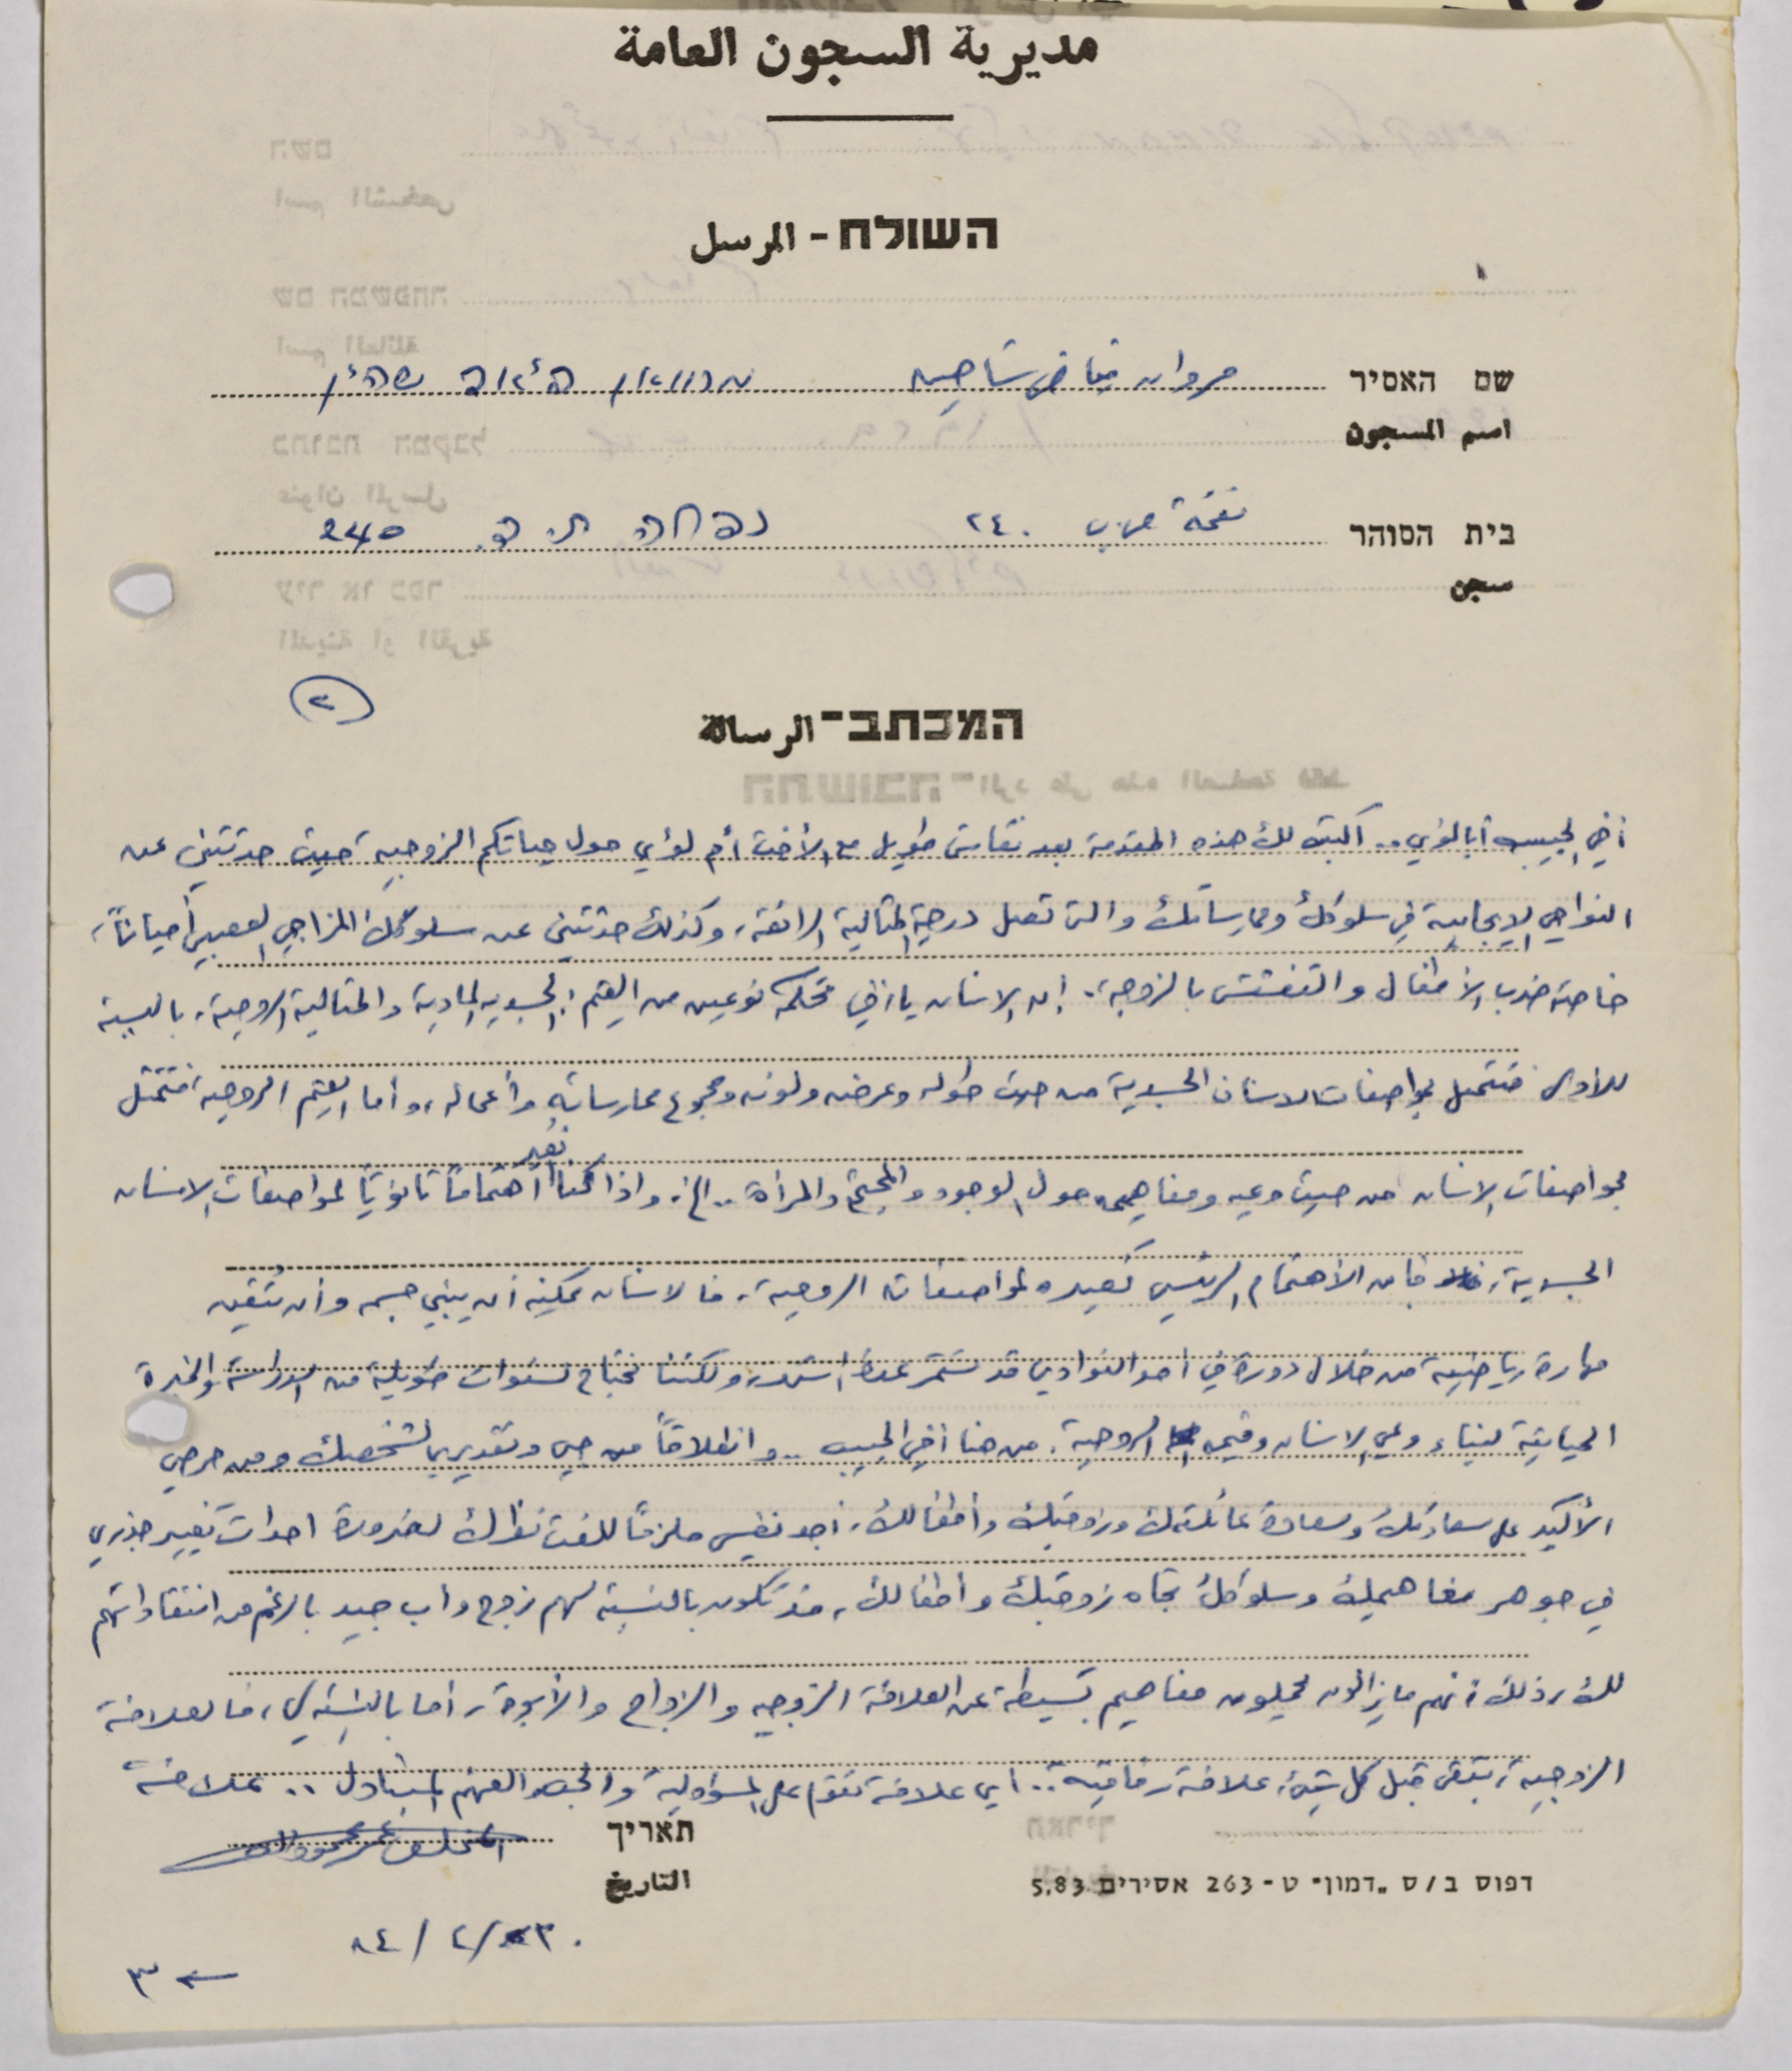 مديرية السجون العامة
השולח - المرسل
שם האסיר مروان شاهين
اسم المسجون
בית הסוהר نفحة ص.ب ٢٤٠ נפחה ת.ד. 240
سجن
٢
המכתב - الرسالة
أخي الحبيب أبا لؤي.. أكتب لك هذه المقدمة بعد نقاش طويل مع الأخت أم لؤي حول حياتكم الزوجية، حيث حدثتني عن
النواحي الإيجابية في سلوكك وممارساتك والتي تصل درجة المثالية الرائعة، وكذلك حدثتني عن سلوكك المزاجي العصبي أحياناً،
خاصة ضرب الأطفال والتفشش بالزوجة. إن الانسان يا أخي تحكمه نوعين من القيم: الجسدية المادية والمثالية الروحية، بالنسبة
للأولى فتتمثل بمواصفات الانسان الجسدية من حيث طوله وعرضه ولونه ومجموع ممارساته وأعماله، وأما القيم الروحية، فتتمثل
بمواصفات الانسان من حيث وعيه ومفاهيمه حول الوجود والمجتمع والمرأة.. الخ. واذا كنا نُعير اهتماماً ثانوياً لمواصفات الانسان
الجسدية، فإن الأهتمام الرئيسي نعيره لمواصفاته الروحية، فالانسان يمكنه أن يبني جسمه وأن يتقن
مهارة رياضية من خلال دورة في أحد النوادي قد تستمر عدة أشهر، ولكننا نحتاج لسنوات طويلة من الدراسة والخبرة
الحياتية لبناء وعي الانسان وقيمه الروحية. من هنا أخي الحبيب.. وانطلاقاً من حبي وتقديري لشخصك ومن حرصي
الأكيد على سعادتك وسعادة عائلتك وزوجتك وأطفالك، أجد نفسي ملزماً للفت نظرك لضرورة احداث تغيير جذري
في جوهر مفاهيمك وسلوكك تجاه زوجتك وأطفالك، قد تكون بالنسبة لهم زوج وأب جيد بالرغم من انتقاداتهم
لك، ذلك أنهم ما يزالون يحملون مفاهيم بسيطة عن العلاقة الزوجية والزواج والأبوة، أما بالنسبة لي، فالعلاقة
الزوجية، تبقى قبل كل شيء، علاقة رفاقية.. أي علاقة تقوم على المسؤولية والحب والفهم المتبادل.. علاقة
תאריך
التاريخ
דפוס ב/ס „דמון" ט - 263 אסירים 5.83
٨٤/٢/
٣ ←